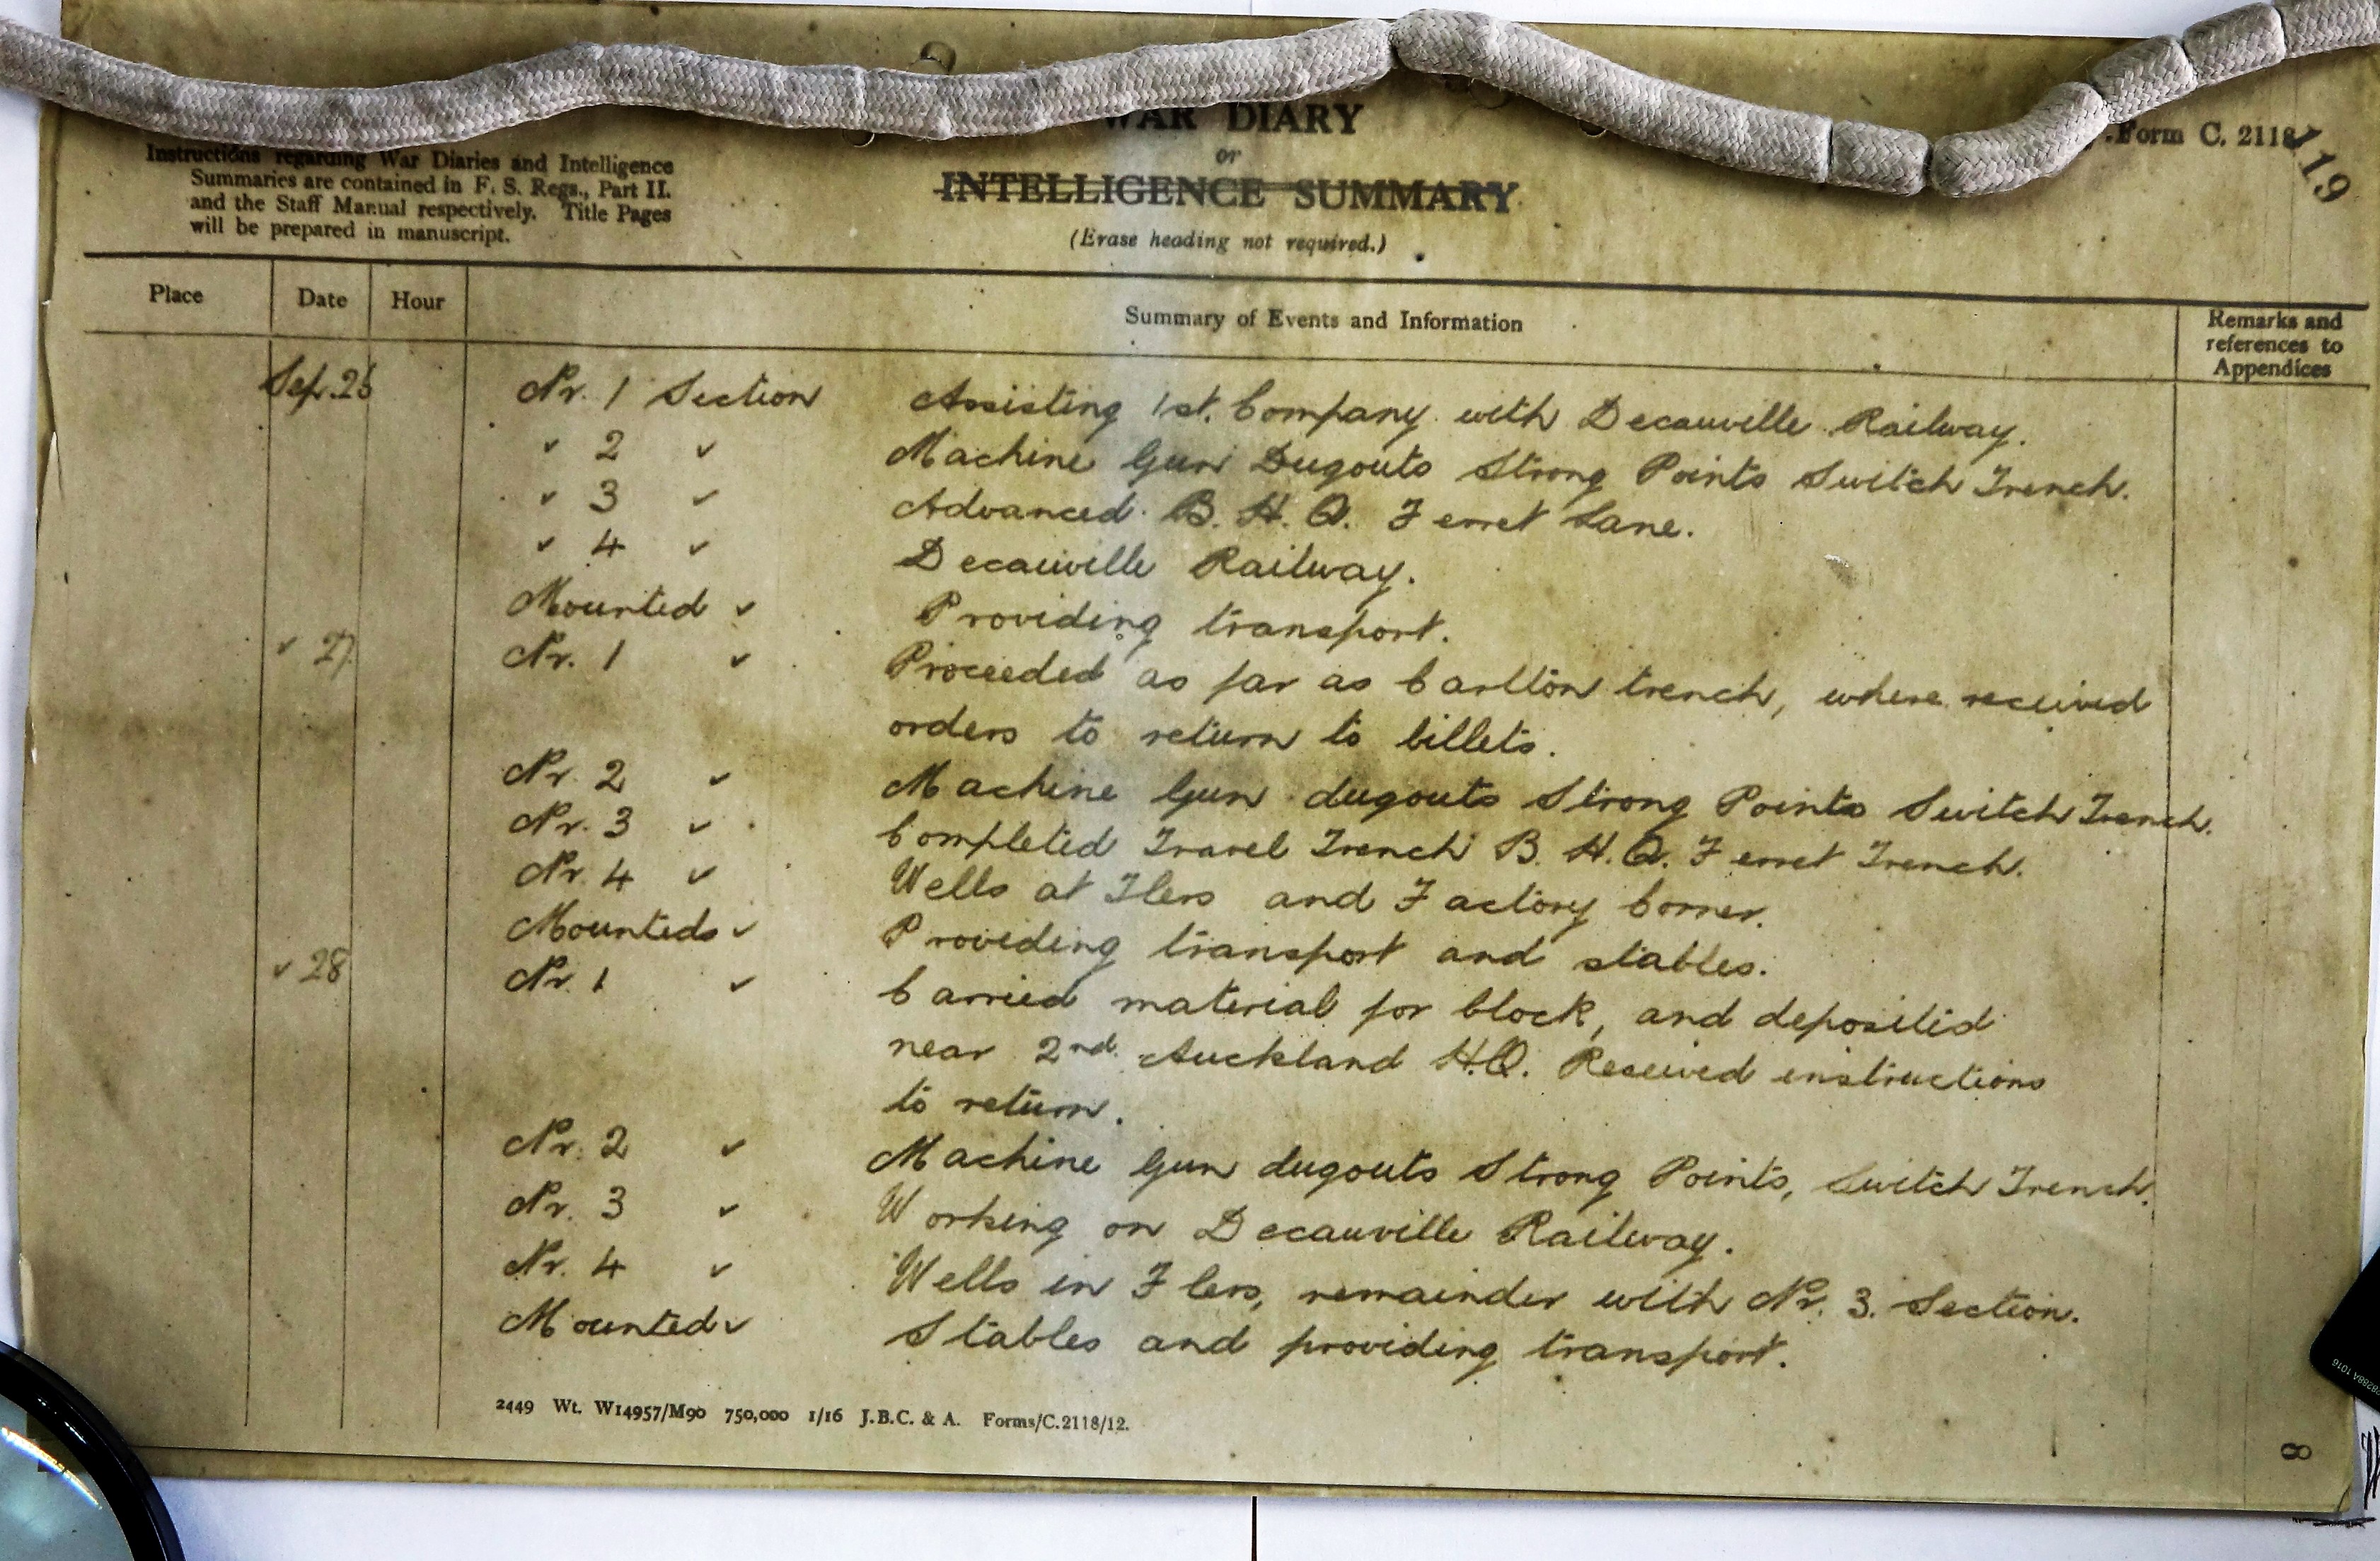 WAR DIARY
or
INTELLIGENCE SUMMARY
(Erase heading not required.)
Form C. 2118
119
Instructions regarding War Diaries and Intelligence
Summaries are contained in F. S. Regs., Part II.
and the Staff Manual respectively. Title Pages
will be prepared in manuscript.
Place Date Hour Summary of Events and Information Remarks and
references to
Appendices
Sep. 26 Nr. 1 Section Assisting 1st. Company with Decauville Railway.
" 2 " Machine Gun Dugouts Strong Points Switch Trench.
" 3 " Advanced B. H. Q. Ferret Lane.
" 4 " Decauville Railway.
Mounted " Providing transport.
" 27 Nr. 1 " Proceeded as far as Carlton trench, where received
orders to return to billets.
Nr. 2 " Machine Gun dugouts Strong Points Switch Trench.
Nr. 3 " Completed Travel Trench B. H. Q. Ferret Trench.
Nr. 4 " Wells at Flers and Factory Corner.
Mounteds " Providing transport and stables.
" 28 Nr. 1 " Carried material for block, and deposited
near 2nd. Auckland H.Q. Received instructions
to return.
Nr. 2 " Machine Gun dugouts Strong Points, Switch Trench.
Nr. 3 " Working on Decauville Railway.
Nr. 4 " Wells in Flers, remainder with Nr. 3. Section.
Mounted " Stables and providing transport.
2449 Wt. W14957/M90 750,000 1/16 J.B.C. & A. Forms/C.2118/12.
8